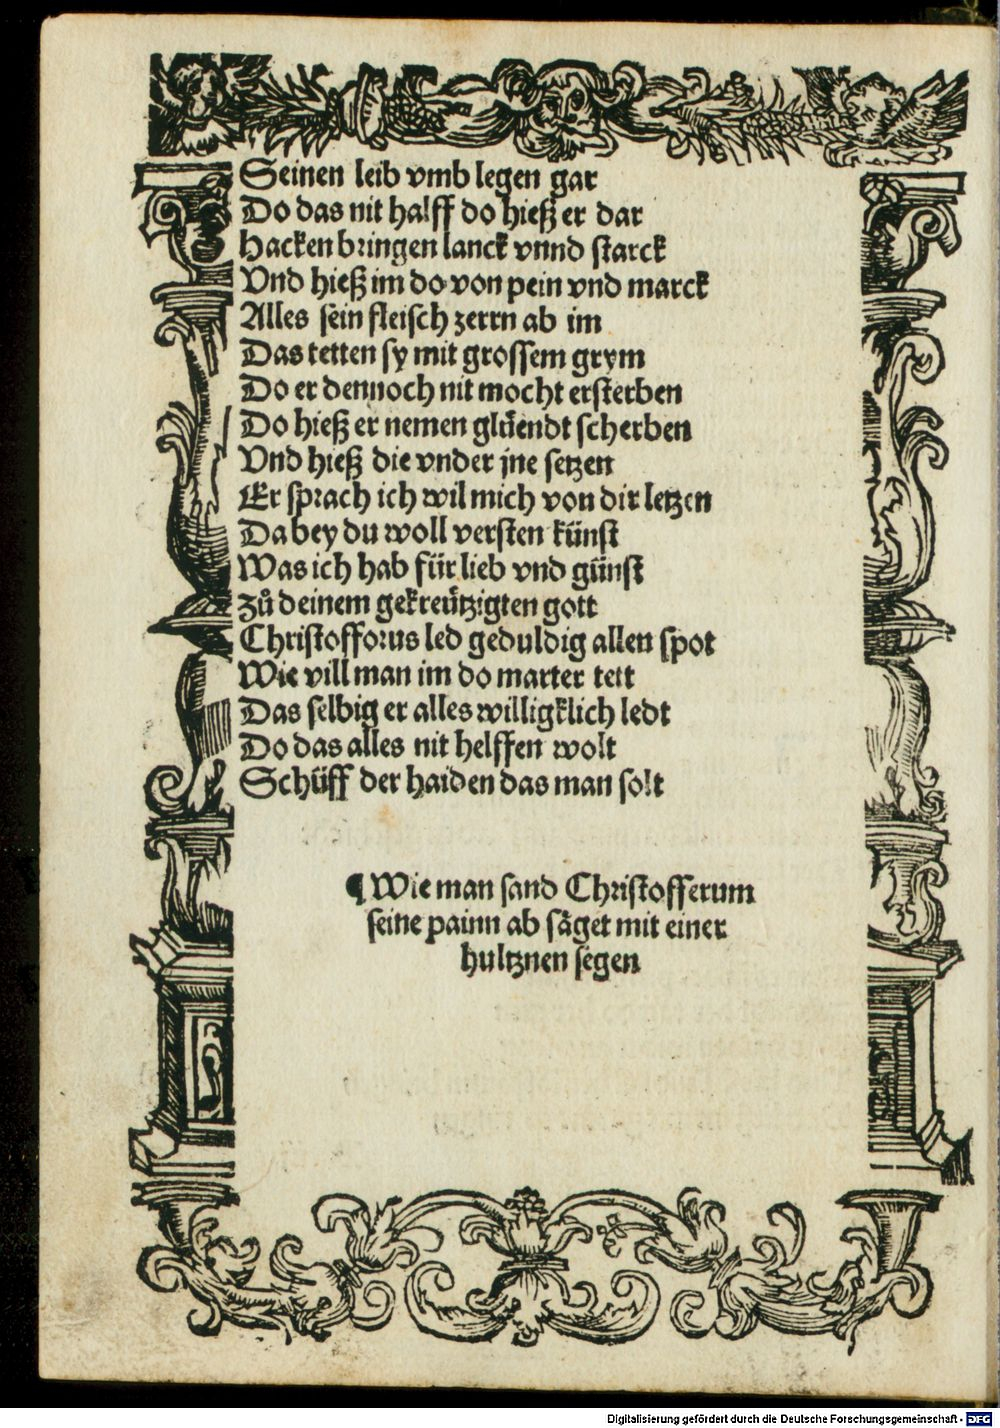 Seinen leib vmb legen gar
Do das nit halff do hieß er dar
Hacken bringen lanck vnnd starck
Vnd hieß im do von pein vnd marck
Alles sein fleisch zerrn ab im
Das tetten sy mit grossem grym
Do er dennoch nit mocht ersterben
Do hieß er nemen glüendt scherben
Vnd hieß die vnder jne setzen
Er sprach ich wil mich von dir letzen
Da bey du woll versten künst
Was ich hab für lieb vnd günst
Zů deinem gekreützigten gott
Christofforus led geduldig allen spot
Wie vill man im do marter tett
Das selbig er alles willigklich ledt
Do das alles nit helffen wolt
Schüff der haiden das man solt
¶ Wie man sand Christofferum
seine painn ab säget mit einer
hultznen segen
Digitalisierung gefördert durch die Deutsche Forschungsgemeinschaft - DFG